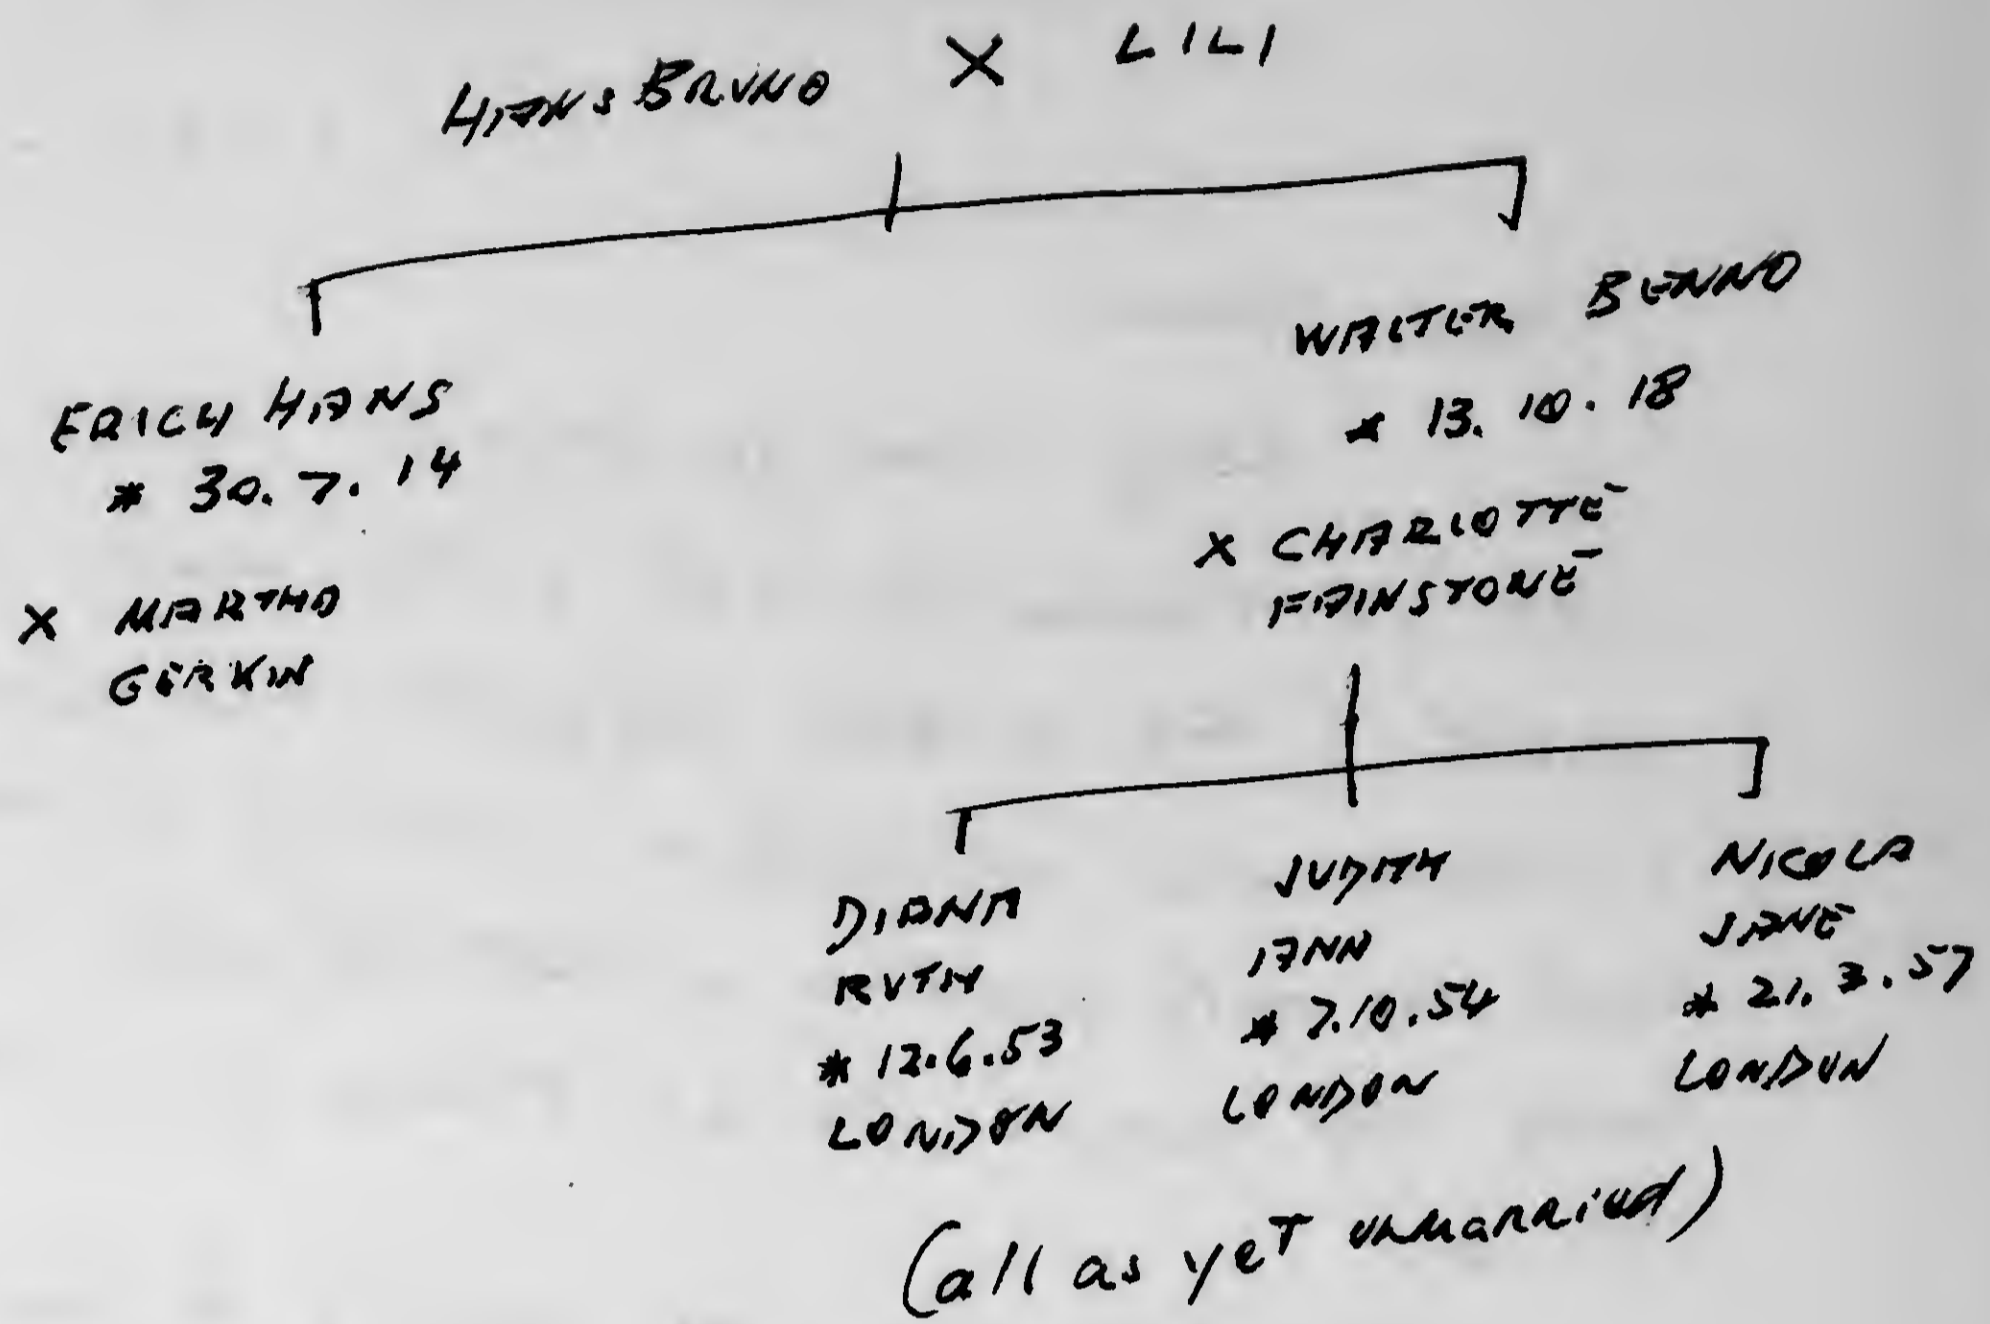 HANS BRUNO X LILI
ERICH HANS
* 30.7.14
X MARTHA
GERKIN
WALTER BENNO
* 13.10.18
X CHARLOTTE
FAINSTONE
DIANA
RUTH
* 12.6.53
LONDON
JUDITH
ANN
* 7.10.54
LONDON
NICOLA
JANE
* 21.3.57
LONDON
(all as yet unmarried)